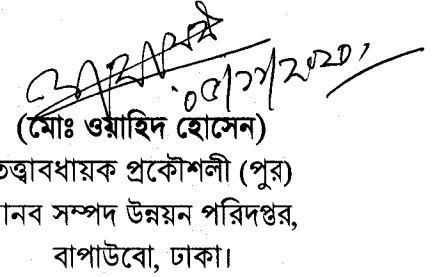 ০৫/১১/২০২০
(মোঃ ওয়াহিদ হোসেন)
তত্ত্বাবধায়ক প্রকৌশলী (পুর)
মানব সম্পদ উন্নয়ন পরিদপ্তর,
বাপাউবো, ঢাকা।